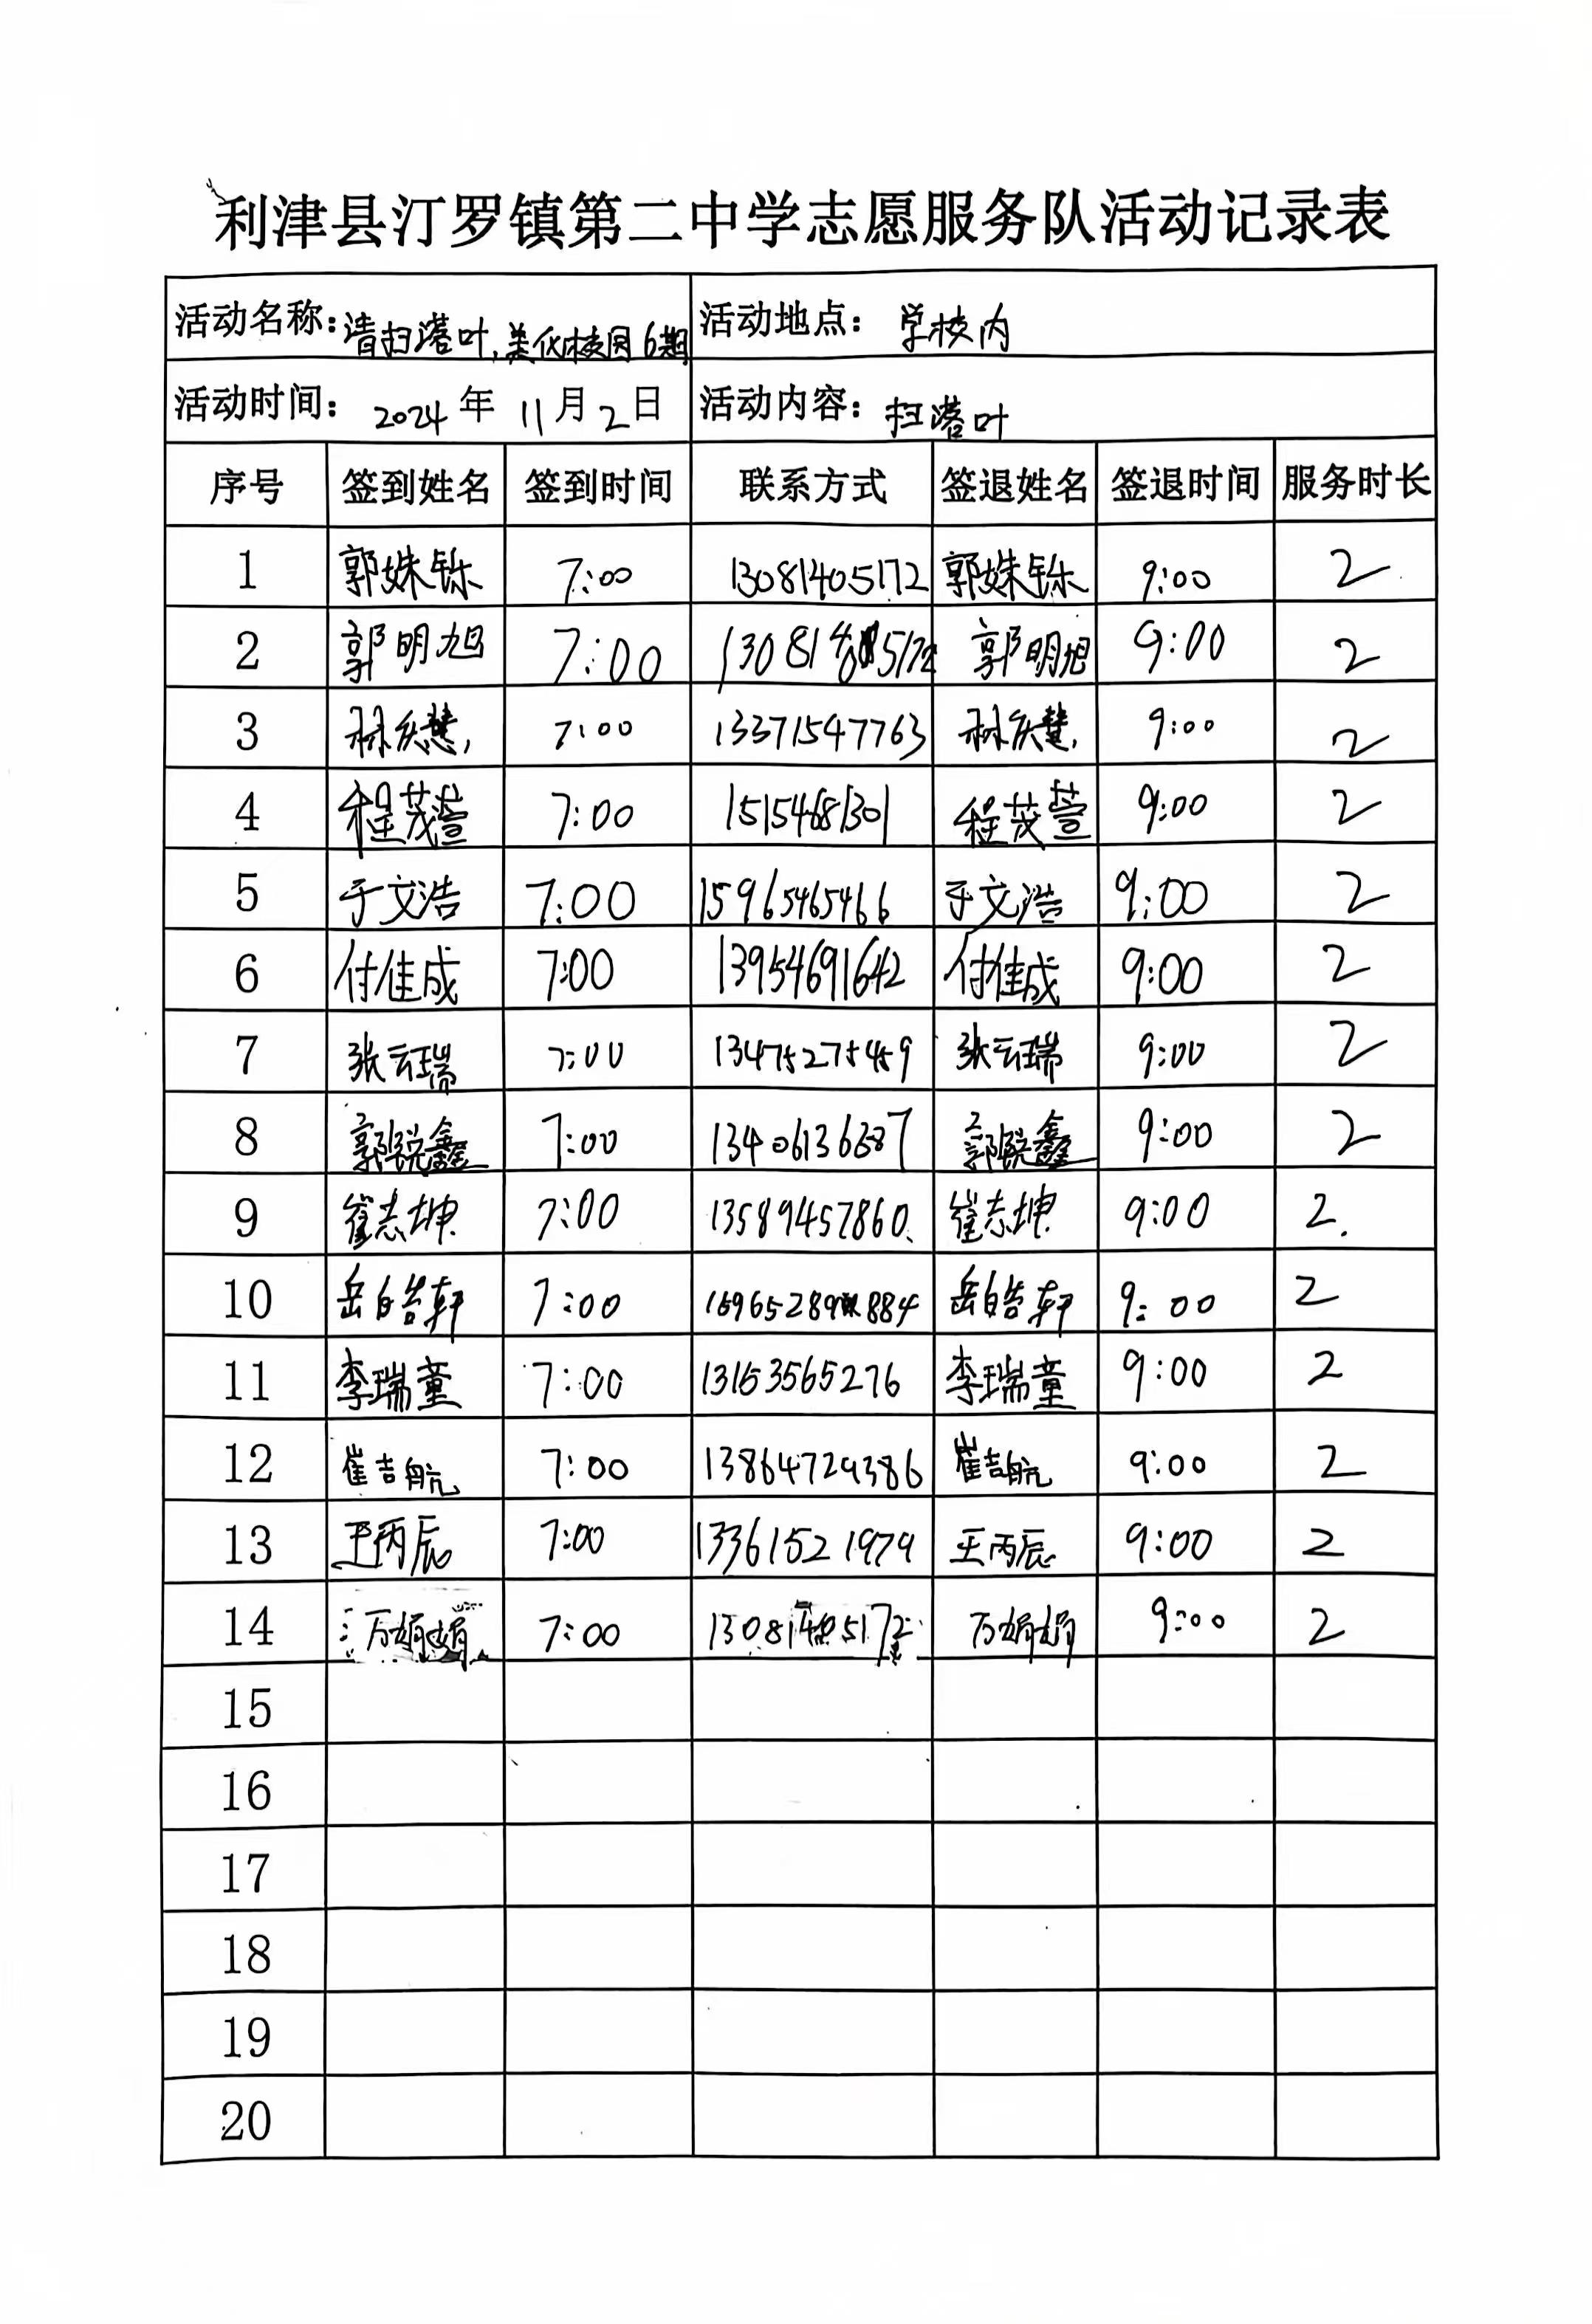 利津县汀罗镇第二中学志愿服务队活动记录表
活动名称：清扫落叶，美化校园6期 活动地点：学校内
活动时间：2024年11月2日 活动内容：扫落叶
序号 签到姓名 签到时间 联系方式 签退姓名 签退时间 服务时长
1 郭姝铄 7:00 13081405172 郭姝铄 9:00 2
2 郭明旭 7:00 郭明旭 9:00 2
3 7:00 13371547763 9:00 2
4 程茂萱 7:00 15154681301 程茂萱 9:00 2
5 于文浩 7:00 15965465466 于文浩 9:00 2
6 付佳成 7:00 13954691642 付佳成 9:00 2
7 张云瑞 7:00 13475275459 张云瑞 9:00 2
8 郭锐鑫 7:00 郭锐鑫 9:00 2
9 崔志坤 7:00 13589457860 崔志坤 9:00 2.
10 岳皓轩 7:00 岳皓轩 9:00 2
11 李瑞童 7:00 13153565276 李瑞童 9:00 2
12 崔吉航 7:00 13864729386 崔吉航 9:00 2
13 王丙辰 7:00 13361521979 王丙辰 9:00 2
14 万娟娟 7:00 13081405172 万娟娟 9:00 2
15
16
17
18
19
20